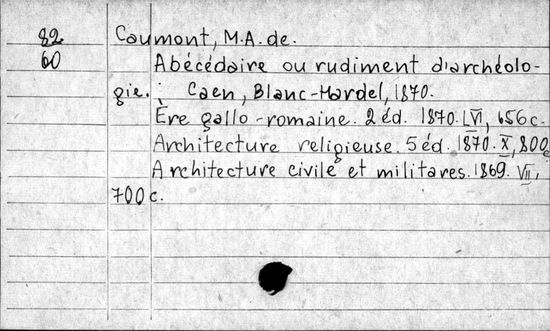 82 Caumont, M.A. de.
60 Abécédaire ou rudiment d'archéolo-
gie. : Caen, Blanc-Hardel, 1870.
Ère gallo-romaine. 2 éd. 1870. LVI, 656 c.
Architecture religieuse. 5 éd. 1870. X, 800 c
Architecture civile et militares. 1869. VII,
700 c.